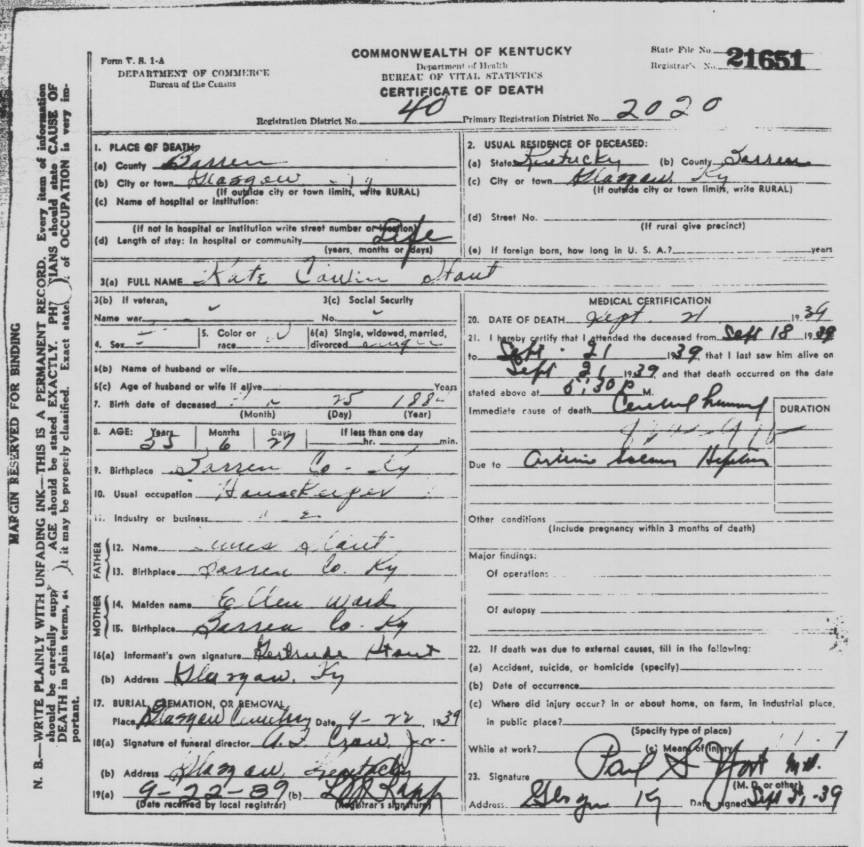 Form V. S. 1-A
DEPARTMENT OF COMMERCE
Bureau of the Census
COMMONWEALTH OF KENTUCKY
Department of Health
BUREAU OF VITAL STATISTICS
CERTIFICATE OF DEATH
State File No. 21651
Registrar's No.
Registration District No. 40 Primary Registration District No. 2020
1. PLACE OF DEATH:
(a) County Barren
(b) City or town Glasgow
(If outside city or town limits, write RURAL)
(c) Name of hospital or institution:
(If not in hospital or institution write street number or location)
(d) Length of stay: In hospital or community Life
(years, months or days)
2. USUAL RESIDENCE OF DECEASED:
(a) State Kentucky (b) County Barren
(c) City or town Glasgow Ky
(If outside city or town limits, write RURAL)
(d) Street No.
(If rural give precinct)
(e) If foreign born, how long in U. S. A.? years
3(a) FULL NAME Kate Stout
3(b) If veteran,
Name war
3(c) Social Security
No.
4. Sex
5. Color or
race
6(a) Single, widowed, married,
divorced
6(b) Name of husband or wife
6(c) Age of husband or wife if alive Years
7. Birth date of deceased 25
(Month) (Day) (Year)
8. AGE: Years Months Days If less than one day
55 6 27 hr. min.
9. Birthplace Barren Co - Ky
10. Usual occupation Housekeeper
11. Industry or business
FATHER
12. Name Stout
13. Birthplace Barren Co. Ky
MOTHER
14. Maiden name Ellen Ward
15. Birthplace Barren Co. Ky
16(a) Informant's own signature Gertrude Stout
(b) Address Glasgow, Ky
17. BURIAL, CREMATION, OR REMOVAL
Place Glasgow Cemetery Date 9-22, 1939
18(a) Signature of funeral director Crow, Jr.
(b) Address Glasgow, Kentucky
19(a) 9-22-39 (b)
(Date received by local registrar) (Registrar's signature)
MEDICAL CERTIFICATION
20. DATE OF DEATH Sept. 21 1939
21. I hereby certify that I attended the deceased from Sept 18 1939
to Sept. 21 1939 that I last saw him alive on
Sept 21 1939 and that death occurred on the date
stated above at 5:30 P M.
Immediate cause of death Cerebral
DURATION
Due to
Other conditions
(Include pregnancy within 3 months of death)
Major findings:
Of operation:
Of autopsy
22. If death was due to external causes, fill in the following:
(a) Accident, suicide, or homicide (specify)
(b) Date of occurrence
(c) Where did injury occur? in or about home, on farm, in industrial place,
in public place?
(Specify type of place)
While at work? (e) Means of Injury
23. Signature Paul S York M.D.
(M. D. or other)
Address Glasgow Ky Date signed Sept 21-39
MARGIN RESERVED FOR BINDING
N. B.—WRITE PLAINLY WITH UNFADING INK—THIS IS A PERMANENT RECORD. Every item of information
should be carefully supp AGE should be stated EXACTLY. PH IANS should state CAUSE OF
DEATH in plain terms, s t it may be properly classified. Exact state of OCCUPATION is very im-
portant.